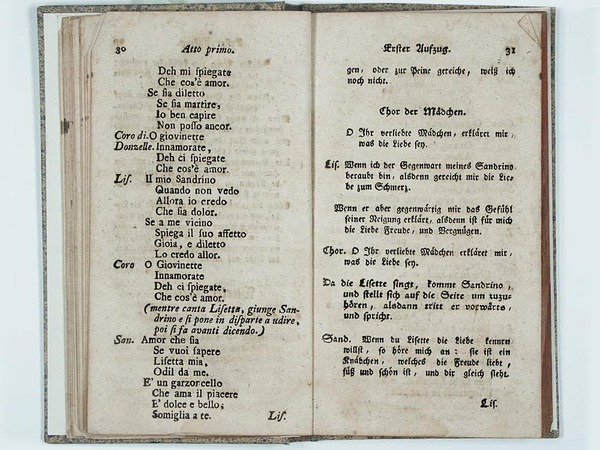 30 Atto primo.
Deh mi ſpiegate
Che cos'è amor.
Se ſia diletto
Se ſia martire,
Io ben capire
Non poſſo ancor.
Coro di. O giovinette
Donzelle. Innamorate,
Deh ci ſpiegate
Che cos'è amor.
Liſ. Il mio Sandrino
Quando non vedo
Allora io credo
Che ſia dolor.
Se a me vicino
Spiega il ſuo affetto
Gioia, e diletto
Lo credo allor.
Coro O Giovinette
Innamorate
Deh ci ſpiegate,
Che cos'è amor.
(mentre canta Liſetta, giunge San-
drino e ſi pone in diſparte a udire,
poi ſi fa avanti dicendo.)
San. Amor che ſia
Se vuoi ſapere
Liſetta mia,
Odil da me.
E' un garzorcello
Che ama il piacere
E' dolce e bello;
Somiglia a te. Liſ.
Erſter Aufzug. 31
gen, oder zur Peine gereiche, weiß ich
noch nicht.
Chor der Mädchen.
O Ihr verliebte Mädchen, erkläret mir,
was die Liebe ſey.
Liſ. Wenn ich der Gegenwart meines Sandrino
beraubt bin, alsdenn gereicht mir die Lie-
be zum Schmerz.
Wenn er aber gegenwärtig mir das Gefühl
ſeiner Neigung erklärt, alsdenn iſt für mich
die Liebe Freude, und Vergnügen.
Chor. O Ihr verliebte Mädchen erkläret mir,
was die Liebe ſey.
Da die Liſette ſingt, kommt Sandrino,
und ſtellt ſich auf die Seite um zuzu-
hören, alsdann tritt er vorwärts,
und ſpricht.
Sand. Wenn du Liſette die Liebe kennen
willſt, ſo höre mich an: ſie iſt ein
Knäbchen, welches die Freude liebt,
ſüß und ſchön iſt, und dir gleich ſieht.
Liſ.